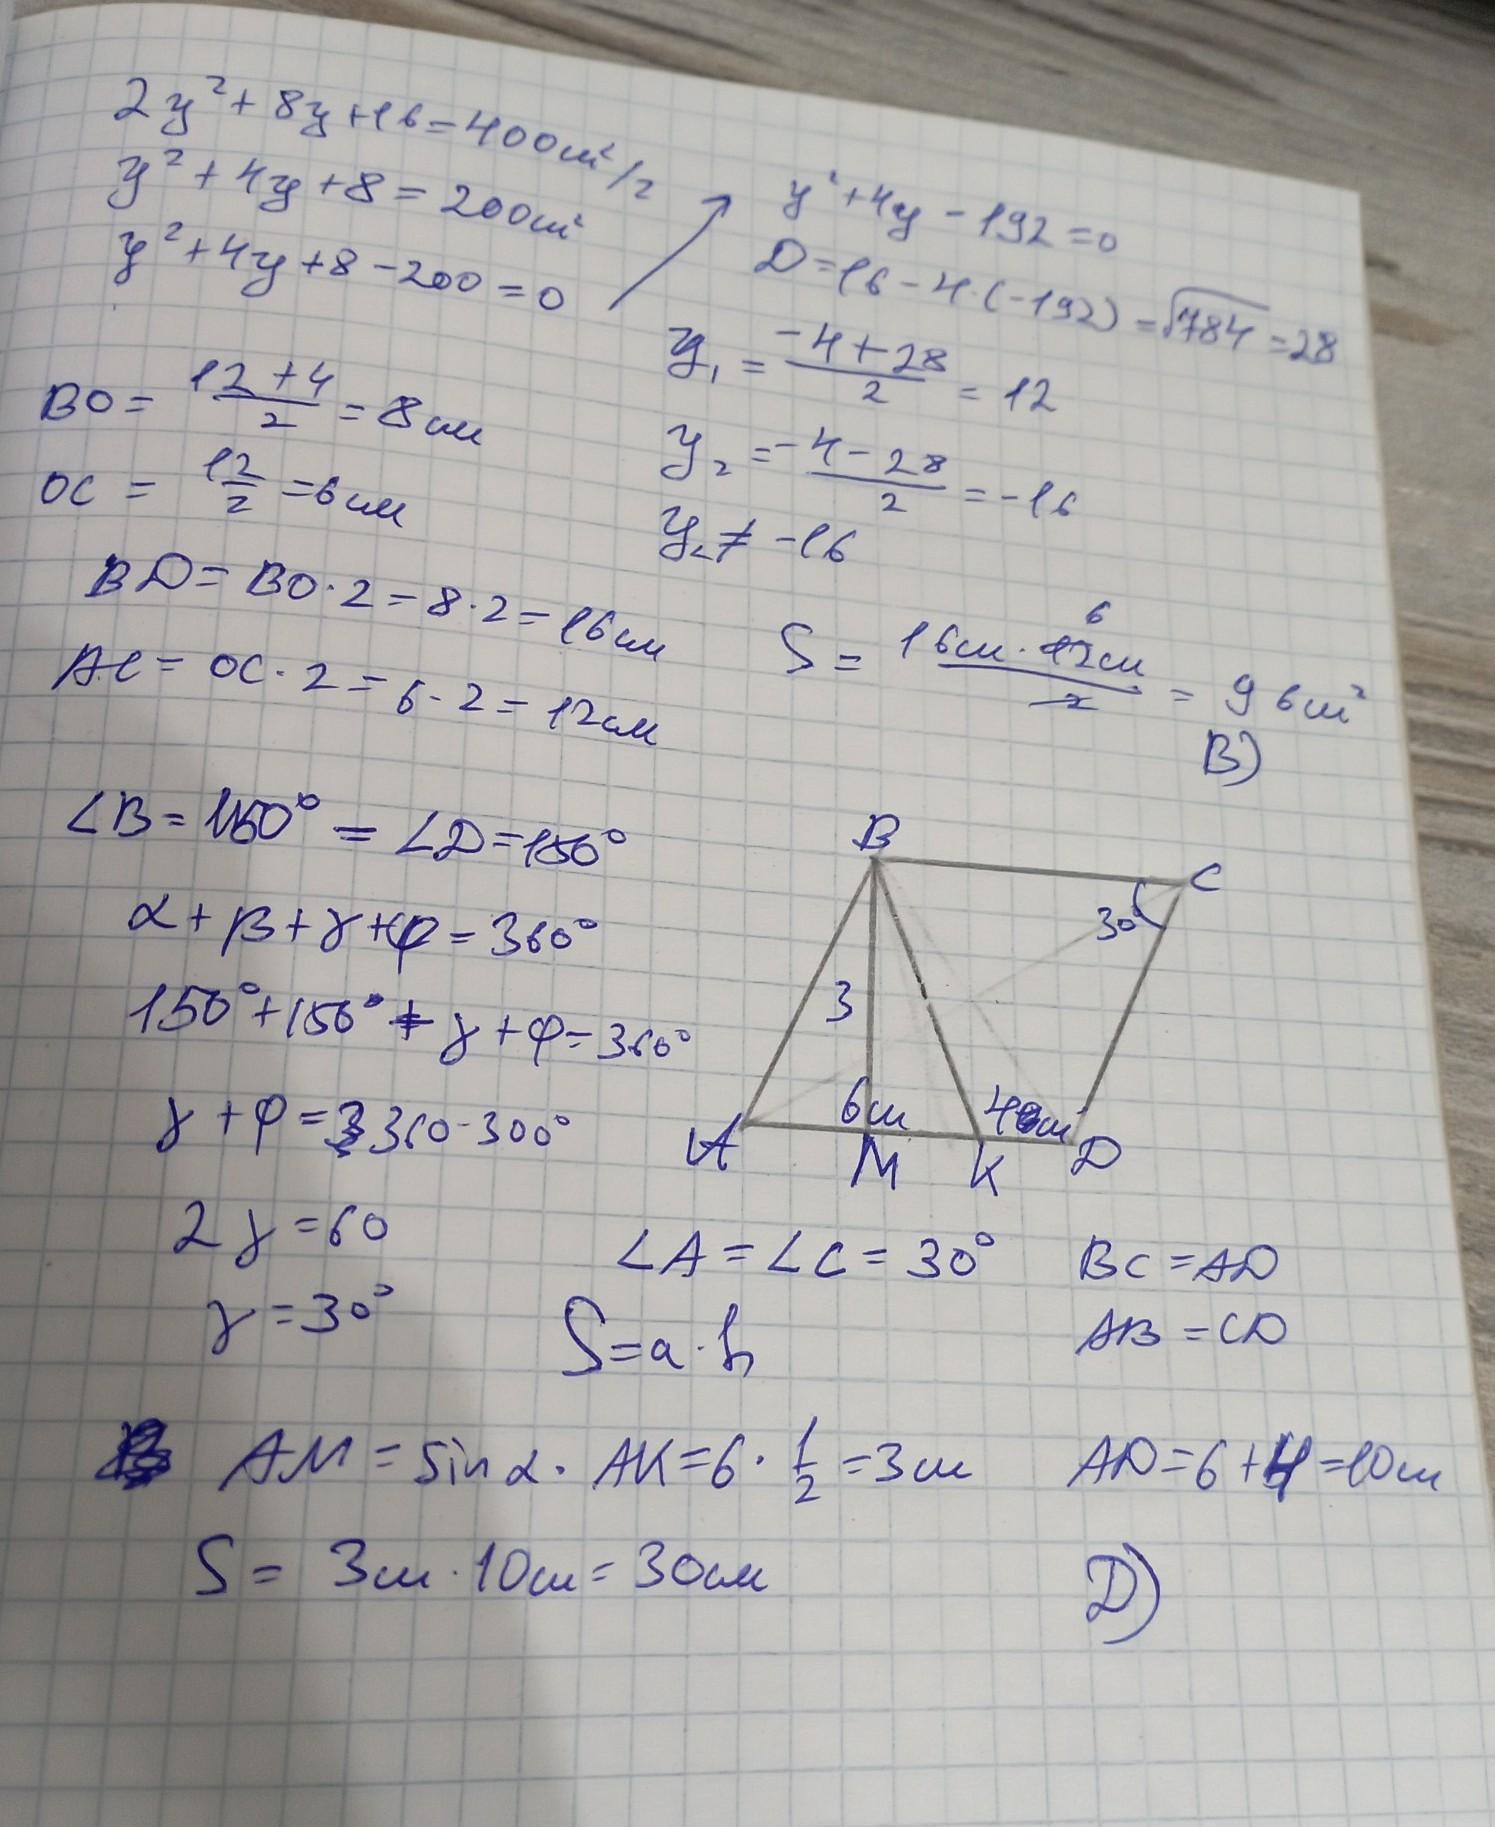 2y² + 8y + 16 = 400см² /2
y² + 4y + 8 = 200см²
y² + 4y + 8 - 200 = 0
y² + 4y - 192 = 0
D = 16 - 4·(-192) = √784 = 28
y₁ = (-4 + 28)/2 = 12
y₂ = (-4 - 28)/2 = -16
y₂ ≠ -16
BO = (12 + 4)/2 = 8см
OC = 12/2 = 6см
BD = BO · 2 = 8 · 2 = 16см
AC = OC · 2 = 6 · 2 = 12см
6
S = (16см · 12см)/2 = 96см²
B)
∠B = 150° = ∠D = 150°
α + β + γ + φ = 360°
150° + 150° + γ + φ = 360°
γ + φ = 360 - 300°
2γ = 60
γ = 30°
B
C
30°
3
6см
4см
A
M
K
D
∠A = ∠C = 30°
BC = AD
S = a · h
AB = CD
AM = sin α · AK = 6 · 1/2 = 3см
AD = 6 + 4 = 10см
S = 3см · 10см = 30см
D)